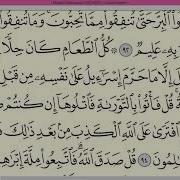 لُوا۟ ٱلْبِرَّ حَتَّىٰ تُنفِقُوا۟ مِمَّا تُحِبُّونَ ۚ وَمَا تُنفِقُوا۟
بِهِۦ عَلِيمٌ ٩٢ ۞ كُلُّ ٱلطَّعَامِ كَانَ حِلًّا
إِلَّا مَا حَرَّمَ إِسْرَٰٓءِيلُ عَلَىٰ نَفْسِهِۦ مِن قَبْلِ
قُلْ فَأْتُوا۟ بِٱلتَّوْرَىٰةِ فَٱتْلُوهَآ إِن كُنتُمْ
ٱفْتَرَىٰ عَلَى ٱللَّهِ ٱلْكَذِبَ مِنۢ بَعْدِ ذَٰلِكَ
لِمُونَ ٩٤ قُلْ صَدَقَ ٱللَّهُ ۗ فَٱتَّبِعُوا۟ مِلَّةَ إِبْرَٰهِ